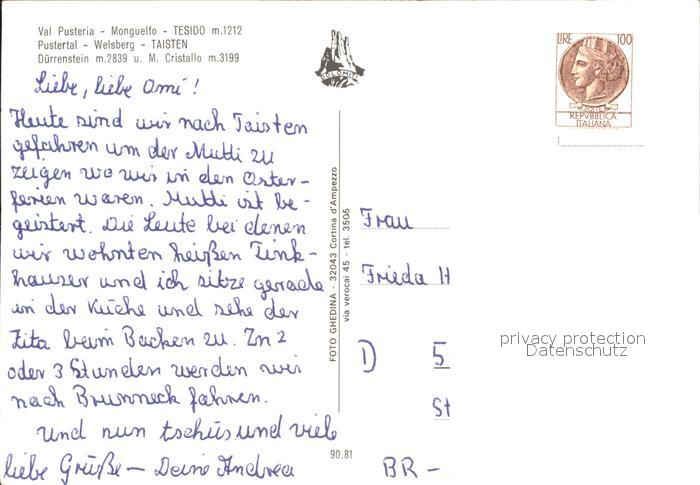 Val Pusteria - Monguelfo - TESIDO m.1212
Pustertal - Welsberg - TAISTEN
Dürrenstein m.2839 u. M. Cristallo m.3199
Liebe, liebe Omi!
Heute sind wir nach Taisten
gefahren um der Mutti zu
zeigen wo wir in den Oster-
ferien waren. Mutti ist be-
geistert. Die Leute bei denen
wir wohnten heißen Tink-
hauser und ich sitze gerade
in der Küche und sehe der
Zita beim Backen zu. In 2
oder 3 Stunden werden wir
nach Brunneck fahren.
Und nun tschüs und viele
liebe Grüße - Deine Andrea
DOLOMITI
FOTO GHEDINA - 32043 Cortina d'Ampezzo
via verocai 45 - tel. 3505
90.81
LIRE 100
POSTE
REPVBBLICA
ITALIANA
Frau
Frieda H
D 5
St
BR -
privacy protection
Datenschutz